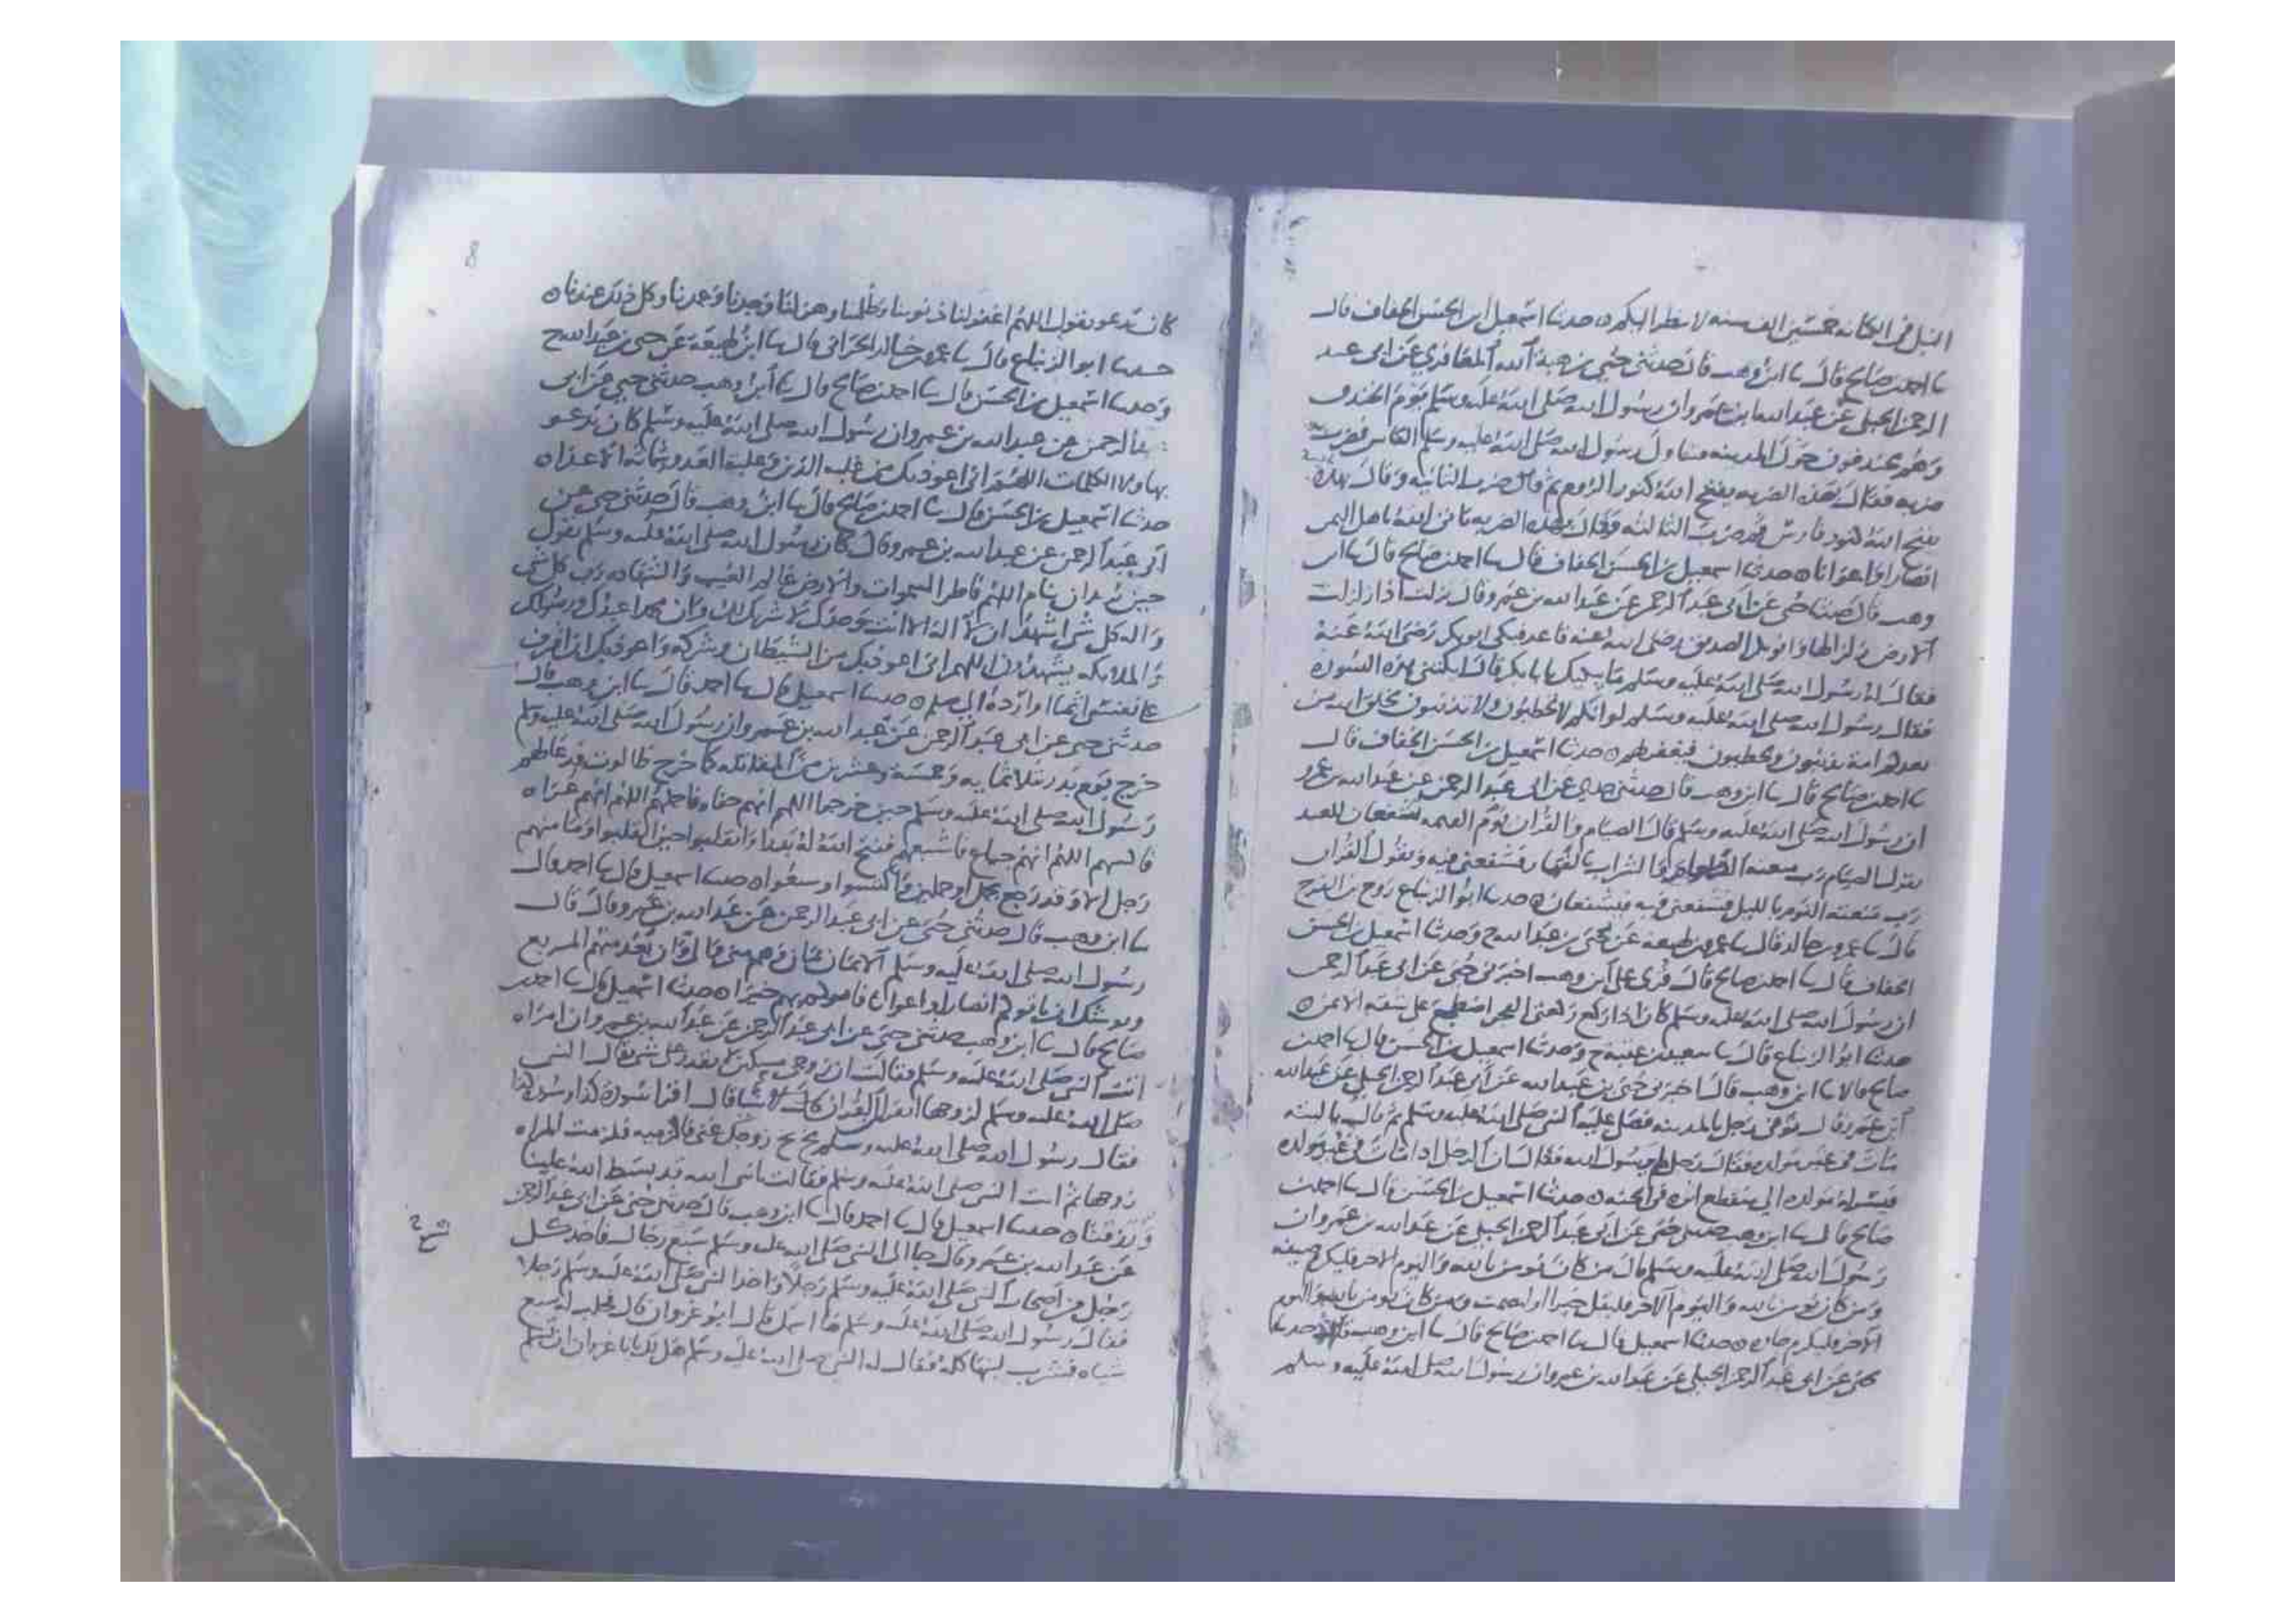 النبل في الكنانه خمسين الف سنه لا ينظر اليكم ه حدثنا اسمعيل ابن الحسن الخفاف قال
نا احمد بن صالح قال نا ابن وهب قال حدثني حيي بن عبد الله المعافري عن ابي عبد
الرحمن الحبلي عن عبد الله بن عمرو ان رسول الله صلى الله عليه وسلم يوم الخندق
وهم يحدقون حول المدينه فتناول رسول الله صلى الله عليه وسلم الفاس فضرب
ضربه فقال بهذه الضربه يفتح الله كنوز الروم ثم ضرب الثانيه وقال بهذه
يفتح الله كنوز فارس ثم ضرب الثالثه فقال بهذه الضربه ياتي الله باهل اليمن
انصارا واعوانا ه حدثنا اسمعيل بن الحسن الخفاف قال نا احمد بن صالح قال نا ابن
وهب قال حدثنا حيي عن ابي عبد الرحمن عن عبد الله بن عمرو قال نزلت اذا زلزلت
الارض زلزالها وابو بكر الصديق رضي الله عنه قاعد فبكى ابو بكر رضي الله عنه
فقال له رسول الله صلى الله عليه وسلم ما يبكيك يا با بكر قال ابكتني هذه السوره
فقال رسول الله صلى الله عليه وسلم لو انكم لا تخطئون ولا تذنبون لخلق الله من
بعدكم امة يذنبون ويخطيون فيغفر لهم ه حدثنا اسمعيل بن الحسن الخفاف قال
نا احمد بن صالح قال نا ابن وهب قال حدثني حيي عن ابي عبد الرحمن عن عبد الله بن عمرو
ان رسول الله صلى الله عليه وسلم قال الصيام والقران يوم القيمه يشفعان للعبد
يقول الصيام رب منعته الطعام والشراب بالنهار فشفعني فيه ويقول القران
رب منعته النوم بالليل فشفعني فيه فيشفعان ه حدثنا ابو الزنباع روح بن الفرج
قال نا عمرو بن خالد قال نا ابن لهيعه عن حيي بن عبد الله ح وحدثنا اسمعيل بن الحسن
الخفاف قال نا احمد بن صالح قال قرى على ابن وهب اخبرني حيي عن ابي عبد الرحمن
ان رسول الله صلى الله عليه وسلم كان اذا ركع ركعتي الفجر اضطجع على شقه الايمن ه
حدثنا ابو الزنباع قال نا سعيد بن عفير ح وحدثنا اسمعيل بن الحسن قال نا احمد بن
صالح قالا نا ابن وهب قال اخبرني حيي بن عبد الله عن ابي عبد الرحمن الحبلي عن عبد الله
ابن عمرو قال توفي رجل بالمدينه فصلى عليه النبي صلى الله عليه وسلم ثم قال يا ليته
مات في غير مولده فقال رجل لم يرسول الله فقال ان الرجل اذا مات في غير مولده
قيس له من مولده الى منقطع اثره في الجنه ه حدثنا اسمعيل بن الحسن قال نا احمد بن
صالح قال نا ابن وهب حدثني حيي عن ابي عبد الرحمن الحبلي عن عبد الله بن عمرو ان
رسول الله صلى الله عليه وسلم قال من كان يومن بالله واليوم الاخر فليكرم ضيفه
ومن كان يومن بالله واليوم الاخر فليقل خيرا او ليصمت ومن كان يومن بالله واليوم
الاخر فليكرم جاره ه حدثنا اسمعيل قال نا احمد بن صالح قال نا ابن وهب قال حدثنا
حيي عن ابي عبد الرحمن الحبلي عن عبد الله بن عمرو ان رسول الله صلى الله عليه وسلم
كان يدعو يقول اللهم اغفر لنا ذنوبنا وظلمنا وهزلنا وجدنا وعمدنا وكل ذلك عندنا ه
حدثنا ابو الزنباع قال نا عمرو بن خالد الحراني قال نا ابن لهيعة عن حيي بن عبد الله ح
وحدثنا اسمعيل بن الحسن قال نا احمد بن صالح قال نا ابن وهب حدثني حيي عن ابي
عبد الرحمن عن عبد الله بن عمرو ان رسول الله صلى الله عليه وسلم كان يدعو
بهاولا الكلمات اللهم اني اعوذ بك من غلبه الدين وغلبة العدو وشماتة الاعداء ه
حدثنا اسمعيل بن الحسن قال نا احمد بن صالح قال نا ابن وهب قال حدثني حيي عن
ابي عبد الرحمن عن عبد الله بن عمرو قال كان رسول الله صلى الله عليه وسلم يقول
حين يريد ان ينام اللهم فاطر السموات والارض عالم الغيب والشهاده رب كل شي
واله كل شي اشهد ان لا اله الا انت وحدك لا شريك لك وان محمدا عبدك ورسولك
والملايكه يشهدون اللهم اني اعوذ بك من الشيطان وشركه واعوذ بك ان اقترف
على نفسي اثما او ارده الى مسلم ه حدثنا اسمعيل قال نا احمد قال نا ابن وهب قال
حدثني حيي عن ابي عبد الرحمن عن عبد الله بن عمرو ان رسول الله صلى الله عليه وسلم
خرج يوم بدر بثلاثمايه وخمسة وعشرين من المقاتله كما خرج طالوت فدعا لهم
رسول الله صلى الله عليه وسلم حين خرجوا اللهم انهم حفاه فاحملهم اللهم انهم عراه
فاكسهم اللهم انهم جياع فاشبعهم ففتح الله له بدرا وانقلبوا حين انقلبوا وما منهم
رجل الا وقد رجع بجمل او جملين واكتسوا وشبعوا ه حدثنا اسمعيل قال نا احمد قال
نا ابن وهب قال حدثني حيي عن ابي عبد الرحمن عن عبد الله بن عمرو قال قال
رسول الله صلى الله عليه وسلم الايمان يمان
ويوشك ان ياتوكم انصارا واعوانا فامركم بهم خيرا ه حدثنا اسمعيل قال نا احمد بن
صالح قال نا ابن وهب حدثني حيي عن ابي عبد الرحمن عن عبد الله بن عمرو ان امراه
اتت النبي صلى الله عليه وسلم فقالت ان زوجي مسكين لا يقدر على شي فقال النبي
صلى الله عليه وسلم لزوجها اتقرا القران قال اقرا سورة كذا وسورة كذا
فقال رسول الله صلى الله عليه وسلم بخ بخ زوجك غني فالزميه فلزمت المراه
زوجها ثم اتت النبي صلى الله عليه وسلم فقالت يا نبي الله قد بسط الله علينا
ورزقنا ه حدثنا اسمعيل قال نا احمد قال نا ابن وهب قال حدثني حيي عن ابي عبد الرحمن
عن عبد الله بن عمرو قال جا الى النبي صلى الله عليه وسلم سبع رجال فاخذ كل
رجل من اصحاب النبي صلى الله عليه وسلم رجلا واخذ النبي صلى الله عليه وسلم رجلا
فقال رسول الله صلى الله عليه وسلم ما اسمك قال ابو غزوان قال فحلب له سبع
شياه فشرب لبنها كله فقال له النبي صلى الله عليه وسلم هل لك يا با غزوان ان تسلم